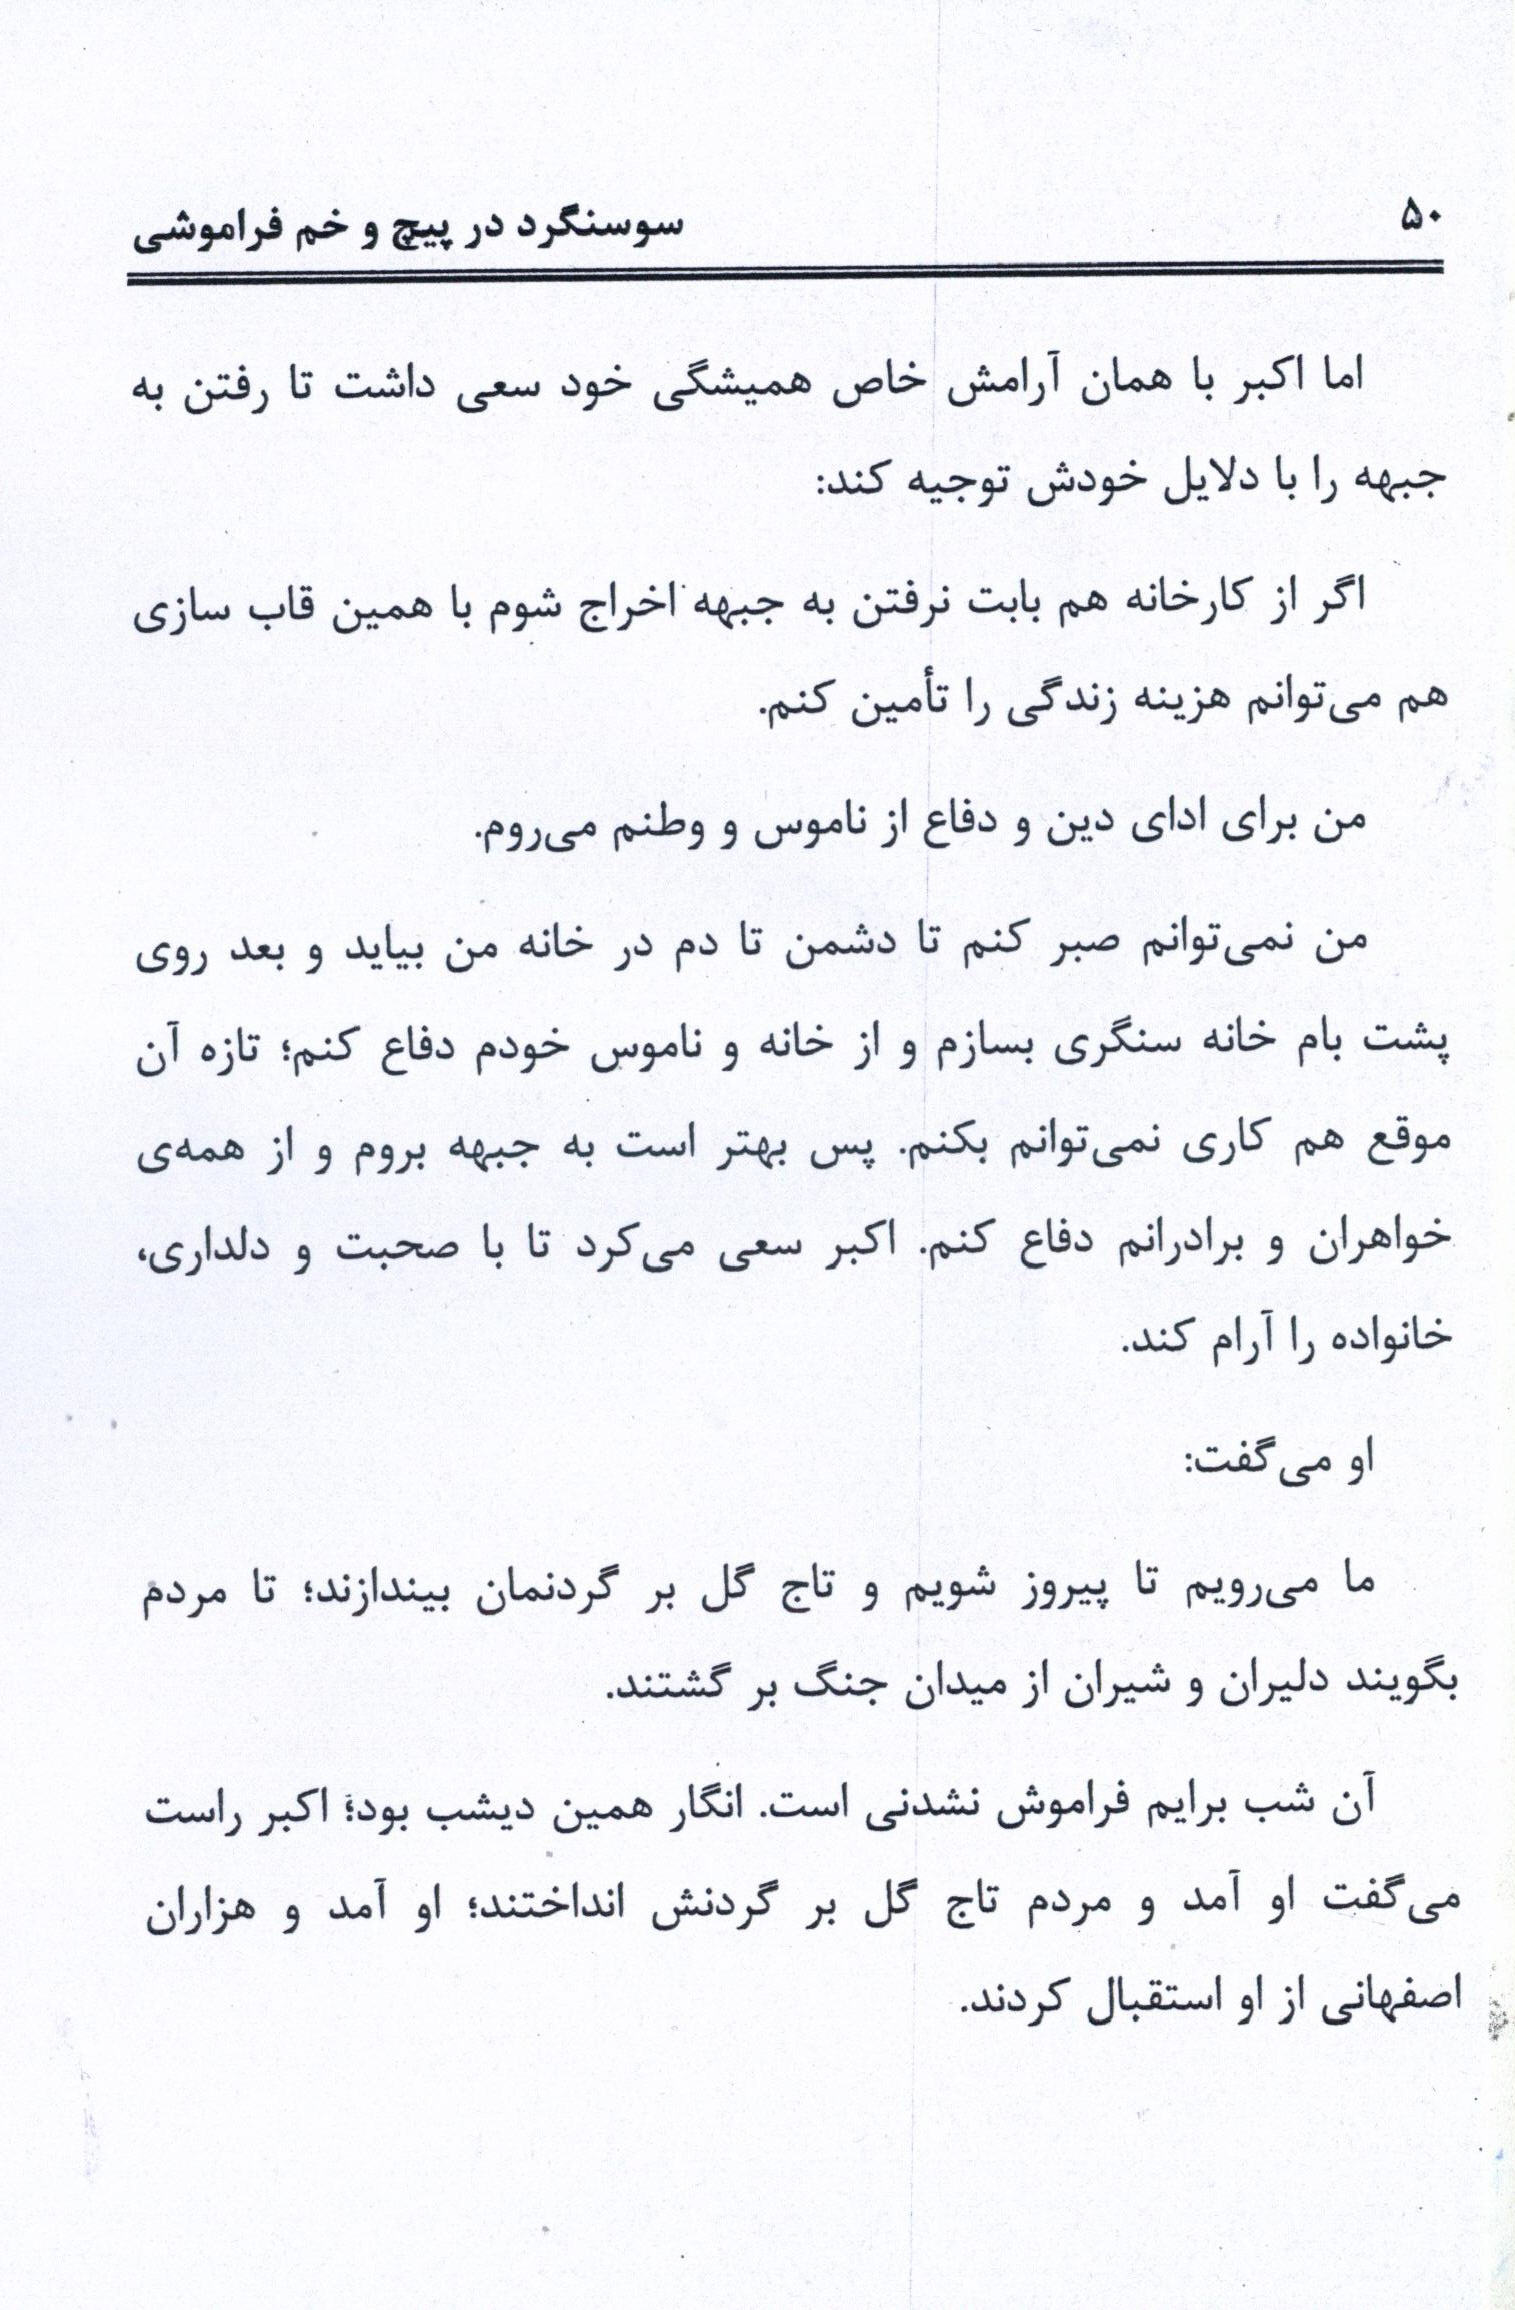 ۵۰
سوسنگرد در پیچ و خم فراموشی
اما اکبر با همان آرامش خاص همیشگی خود سعی داشت تا رفتن به
جبهه را با دلایل خودش توجیه کند:
اگر از کارخانه هم بابت نرفتن به جبهه اخراج شوم با همین قاب سازی
هم می‌توانم هزینه زندگی را تأمین کنم.
من برای ادای دین و دفاع از ناموس و وطنم می‌روم.
من نمی‌توانم صبر کنم تا دشمن تا دم در خانه من بیاید و بعد روی
پشت بام خانه سنگری بسازم و از خانه و ناموس خودم دفاع کنم؛ تازه آن
موقع هم کاری نمی‌توانم بکنم. پس بهتر است به جبهه بروم و از همه‌ی
خواهران و برادرانم دفاع کنم. اکبر سعی می‌کرد تا با صحبت و دلداری،
خانواده را آرام کند.
او می‌گفت:
ما می‌رویم تا پیروز شویم و تاج گل بر گردنمان بیندازند؛ تا مردم
بگویند دلیران و شیران از میدان جنگ بر گشتند.
آن شب برایم فراموش نشدنی است. انگار همین دیشب بود؛ اکبر راست
می‌گفت او آمد و مردم تاج گل بر گردنش انداختند؛ او آمد و هزاران
اصفهانی از او استقبال کردند.